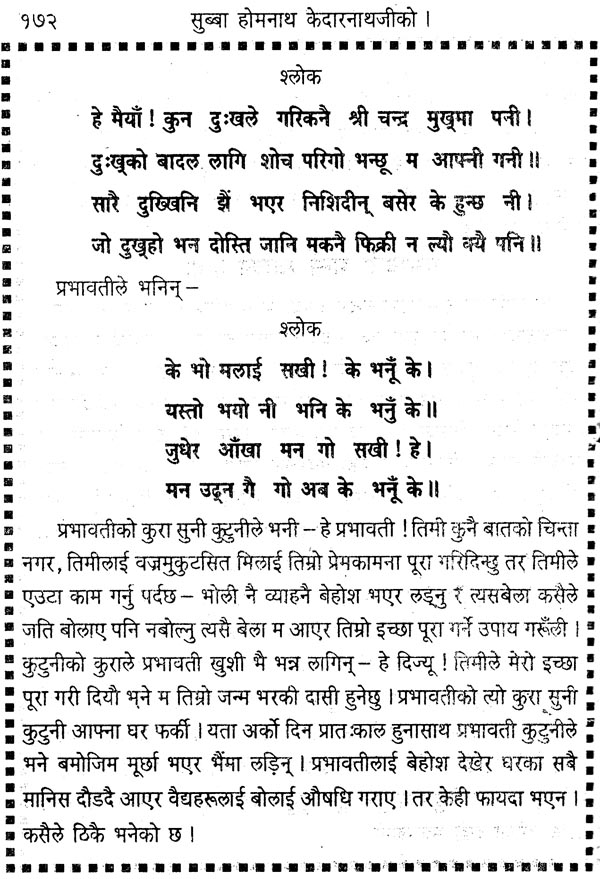 १७२ सुब्बा होमनाथ केदारनाथजीको ।
श्लोक
हे मैयाँ ! कुन दुःखले गरिकनै श्री चन्द्र मुख्‌मा पनी ।
दुःख्‌को बादल लागि शोच परिगो भन्छू म आफ्नी गनी ॥
सारै दुख्खिनि झैं भएर निशिदीन् बसेर के हुन्छ नी ।
जो दुख्‌हो भन दोस्ति जानि मकनै फिक्री न ल्यौ क्यै पनि ॥
प्रभावतीले भनिन् –
श्लोक
के भो मलाई सखी ! के भनूँ के ।
यस्तो भयो नी भनि के भनुँ के ॥
जुधेर आँखा मन गो सखी ! हे ।
मन उढ्न गै गो अब के भनूँ के ॥
प्रभावतीको कुरा सुनी कुटुनीले भनी – हे प्रभावती ! तिमी कुनै बातको चिन्ता
नगर, तिमीलाई वज्रमुकुटसित मिलाई तिम्रो प्रेमकामना पूरा गरिदिन्छु तर तिमीले
एउटा काम गर्नु पर्दछ – भोली नै व्याहनै बेहोश भएर लड्नु र त्यसबेला कसैले
जति बोलाए पनि नबोल्नु त्यसै बेला म आएर तिम्रो इच्छा पूरा गर्ने उपाय गरूँली ।
कुटुनीको कुराले प्रभावती खुशी भै भन्न लागिन् – हे दिज्यू ! तिमीले मेरो इच्छा
पूरा गरी दियौ भने म तिम्रो जन्म भरकी दासी हुनेछु । प्रभावतीको त्यो कुरा सुनी
कुटुनी आफ्ना घर फर्की । यता अर्को दिन प्रातःकाल हुनासाथ प्रभावती कुटुनीले
भने बमोजिम मूर्छा भएर भैंमा लडिन् । प्रभावतीलाई बेहोश देखेर घरका सबै
मानिस दौडदै आएर वैद्यहरूलाई बोलाई औषधि गराए । तर केही फायदा भएन ।
कसैले ठिकै भनेको छ !